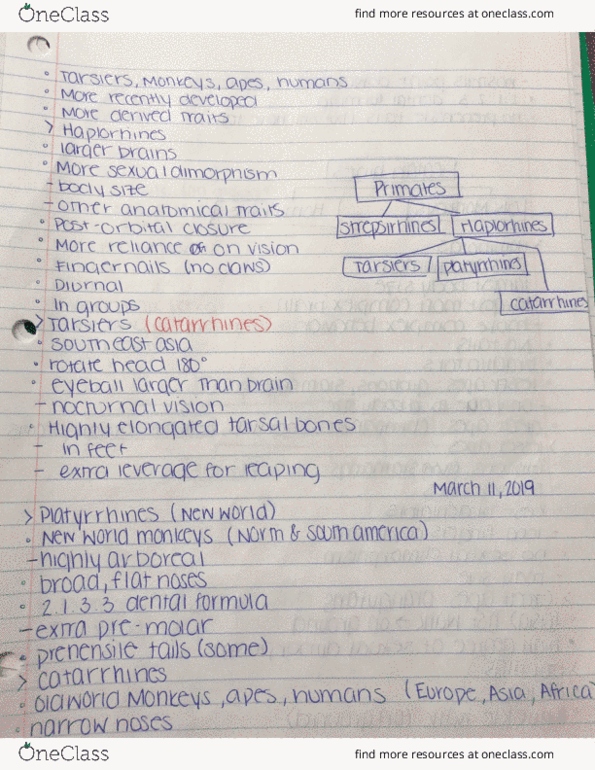 OneClass
find more resources at oneclass.com
° Tarsiers, Monkeys, apes, humans
° More recently developed
° More derived traits
> Haplorhines
° larger brains
° More sexual dimorphism
- body size
- other anatomical traits
° Post-orbital closure
° More reliance of on vision
° Fingernails (no claws)
° Diurnal
° In groups
Primates
Strepsirhines
Haplorhines
Tarsiers
platyrrhines
catarrhines
> Tarsiers (catarrhines)
° southeast asia
° rotate head 180°
° eyeball larger than brain
- nocturnal vision
° Highly elongated tarsal bones
- in feet
- extra leverage for leaping
March 11, 2019
> Platyrrhines (New World)
° New World monkeys (North & South america)
- highly arboreal
° broad, flat noses
° 2.1.3.3 dental formula
- extra pre-molar
° prehensile tails (some)
> catarrhines
° old world Monkeys, apes, humans (Europe, Asia, Africa)
° narrow noses
OneClass
find more resources at oneclass.com